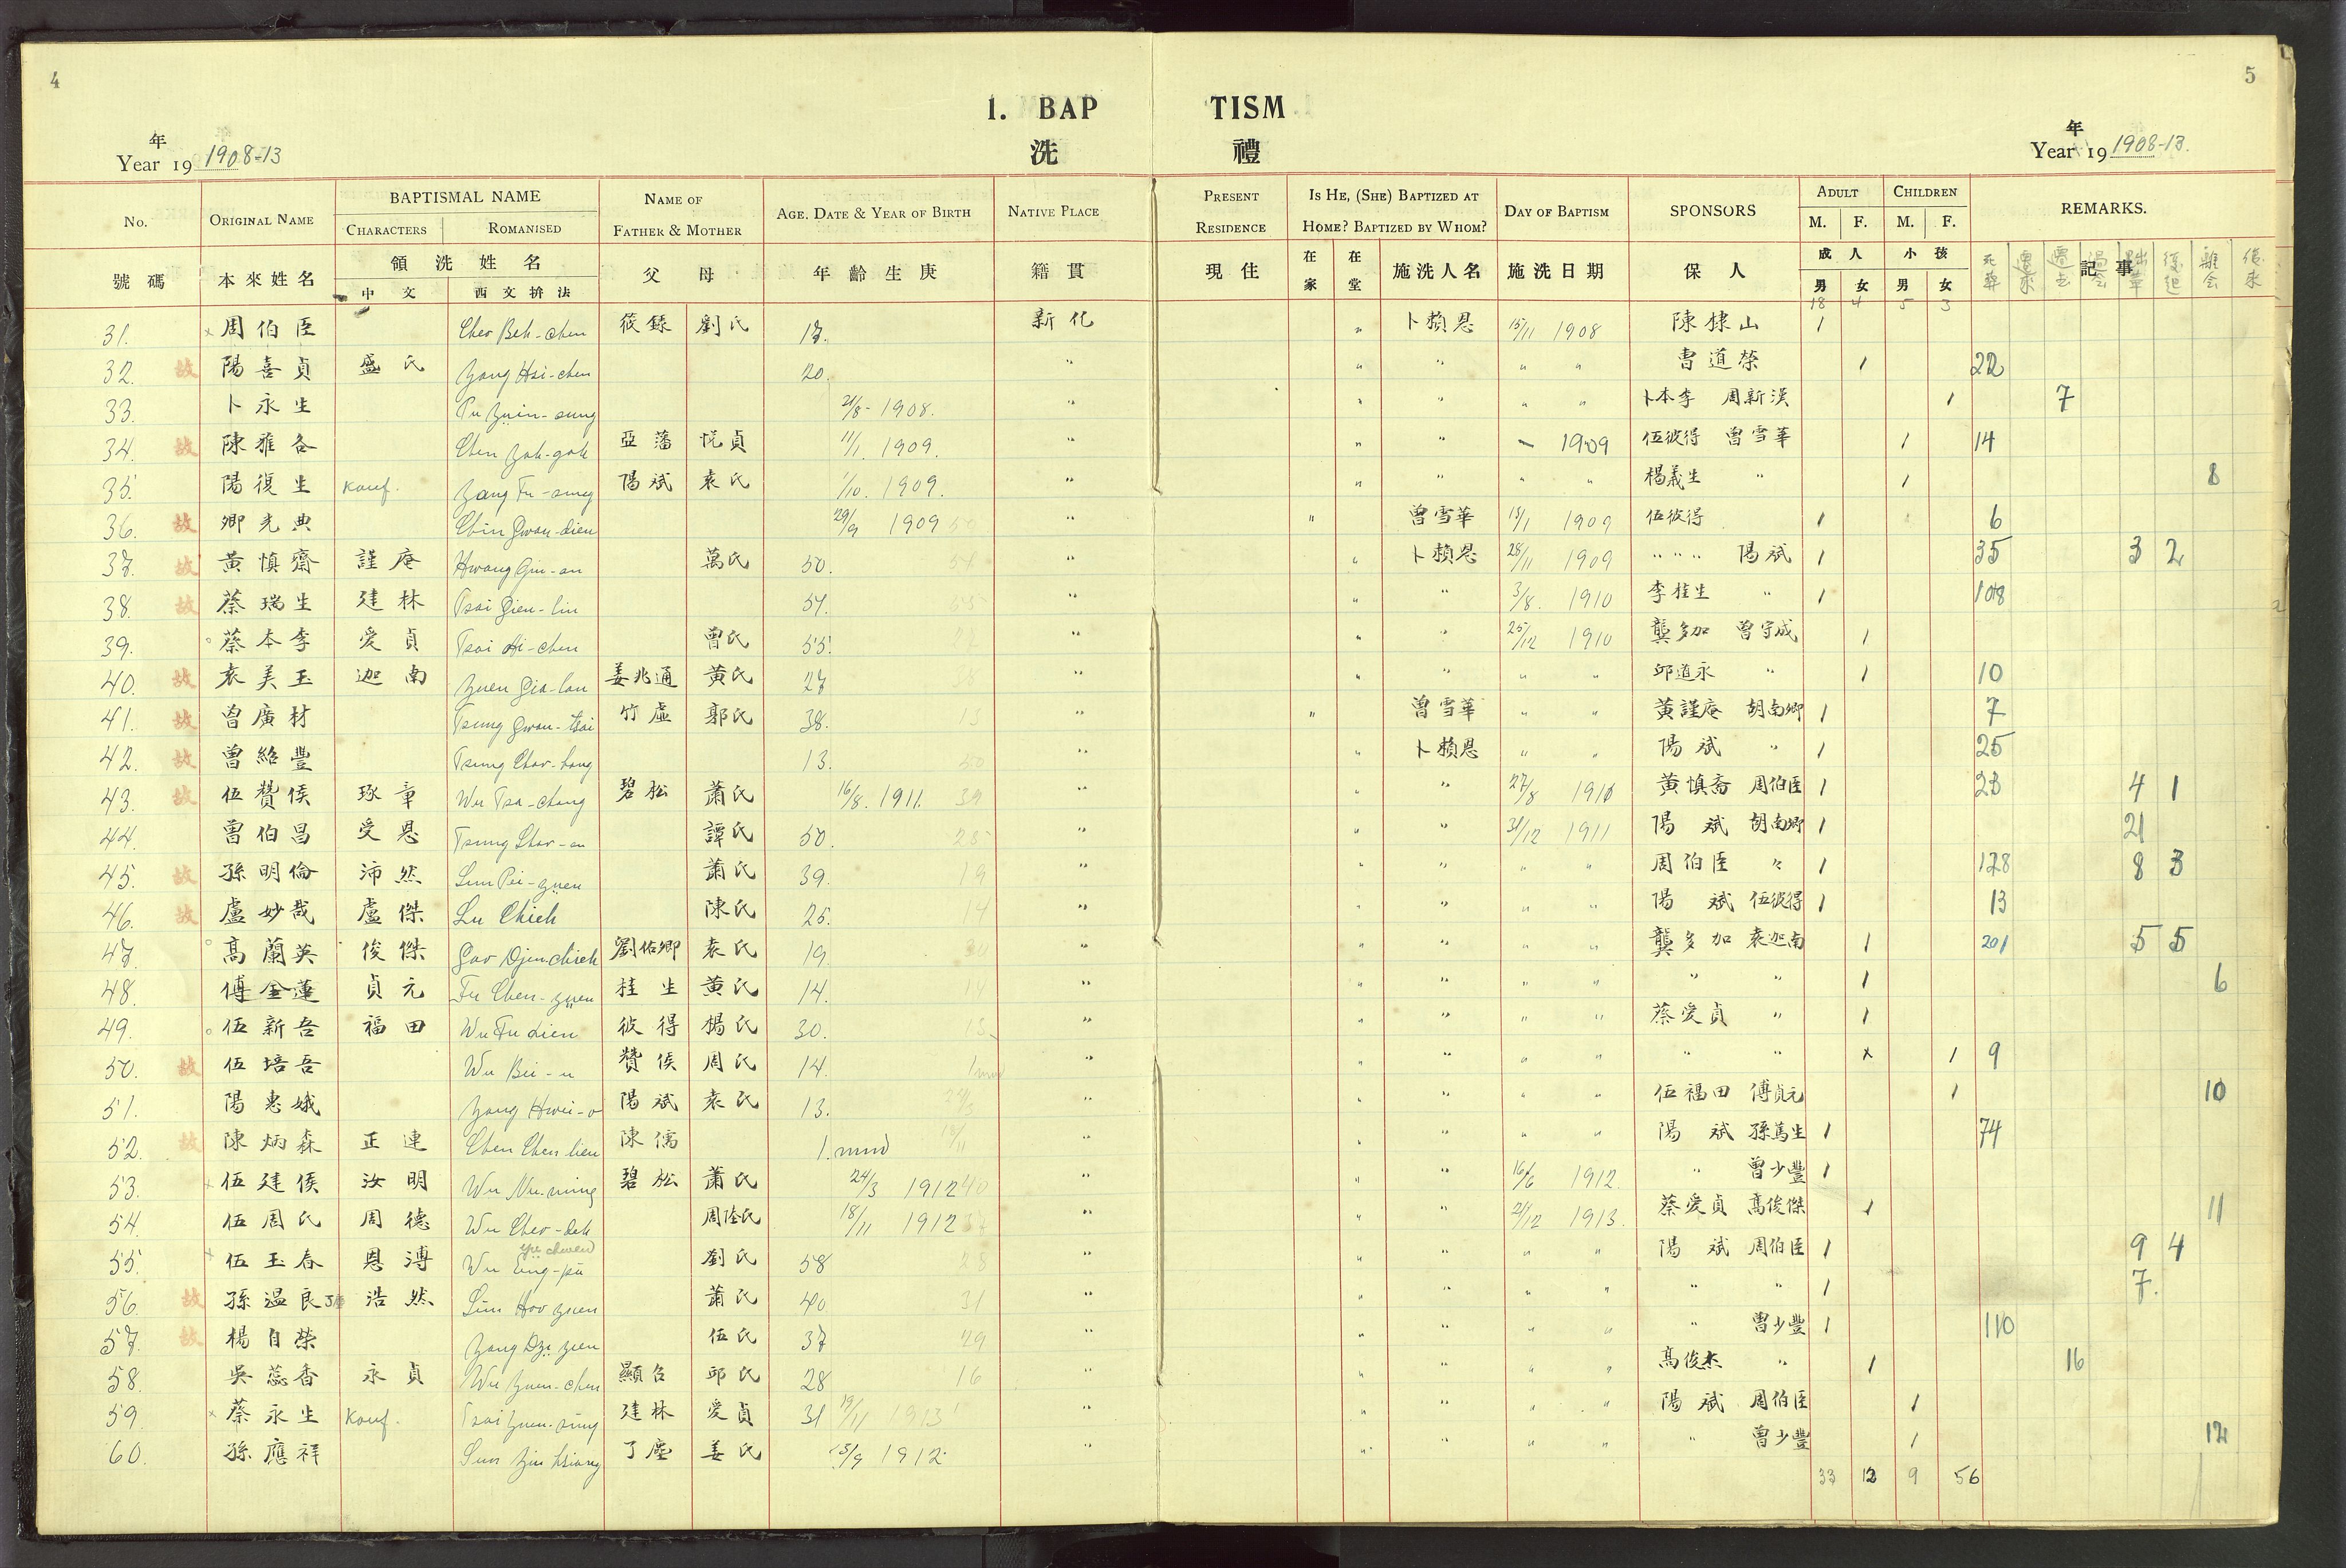 4
5
1. BAP TISM
洗 禮
年
Year 19 1908-13
年
Year 19 1908-13.
No. ORIGINAL NAME BAPTISMAL NAME NAME OF FATHER & MOTHER AGE. DATE & YEAR OF BIRTH NATIVE PLACE PRESENT RESIDENCE IS HE, (SHE) BAPTIZED AT HOME? BAPTIZED BY WHOM? DAY OF BAPTISM SPONSORS ADULT CHILDREN REMARKS.
CHARACTERS ROMANISED M. F. M. F.
號碼 本來姓名 領洗姓名 父 母 年齡生庚 籍貫 現住 在家 在堂 施洗人名 施洗日期 保人 成人 小孩 記事
中文 西文拚法 男 女 男 女
18 4 5 3
31. x 周伯臣 Cheo Beh-chen 筱錄 劉氏 17. 新化 " 卜賴恩 15/11 1908 陳棣山 1
32. 故 陽喜貞 盛氏 Yang Hsi-chen 20. " " " " " 曹道榮 1 22
33. 卜永生 Pu Yuin-sung 21/8 - 1908. " " " " " 卜本李 周新漢 1 7
34. 故 陳雅各 Chen Yah-goh 亞藩 悅貞 11/1. 1909. " " " – 1909 伍彼得 曾雪華 1 14
35. 陽復生 Konf. Yang Fu-sung 陽斌 袁氏 1/10. 1909. " " " " " 楊義生 " 1 8
36. 故 卿光典 Chin Gwan-dien 29/9 1909 " " 曾雪華 13/1 1909 伍彼得 1 6
37. 故 黃慎齋 謹庵 Hwang Gin-an 萬氏 50. " " 卜賴恩 28/11 1909 " " " 陽斌 1 35 3 2
38. 故 蔡瑞生 建林 Tsai Gien-lin 57. " " " 3/8. 1910 李桂生 " 1 108
39. 蔡本李 愛貞 Tsai Ai-chen 曾氏 55. " " " 25/12 1910 龔多加 曾守成 1
40. 故 袁美玉 迦南 Yuen Gia-lan 姜兆通 黃氏 27 " " " " " 邱道永 " 1 10
41. 故 曾廣材 Tsung Gwan-tsai 竹虛 郭氏 38. " " 曾雪華 " " 黃謹庵 胡南卿 1 7
42. 故 曾紹豐 Tsung Chao-hong 13. " " 卜賴恩 " " 陽斌 " 1 25
43. 故 伍贊侯 琢章 Wu Tso-chang 碧松 蕭氏 16/8. 1911. 39 " " " 27/8 1910 黃慎斋 周伯臣 1 23 4 1
44. 曾伯昌 受恩 Tsung Shou-en 譚氏 50. " " " 31/12 1911 陽斌 胡南卿 1 21
45. 故 孫明倫 沛然 Sun Pei-yuen 蕭氏 39. 19 " " " " " 周伯臣 " 1 128 8 3
46. 故 盧妙哉 盧傑 Lu Chieh 陳氏 25. " " " " " 陽斌 伍彼得 1 13
47. 高蘭英 俊傑 Gao Djin-chieh 劉佑卿 袁氏 19. " " " " " 龔多加 袁迦南 1 201 5 5
48. 傅金蓮 貞元 Fu Chen-yuen 桂生 黃氏 14. " " " " " " " 1 6
49. 伍新吾 福田 Wu Fu dien 彼得 楊氏 30. " " " " " 蔡愛貞 " 1
50. 故 伍培吾 Wu Bei-u 贊侯 周氏 14. " " " " " " " x 1 9
51. 陽惠娥 Yang Hwei-o 陽斌 袁氏 13. " " " " " 伍福田 傅貞元 1 10
52. 故 陳炳森 正連 Chen Chen lien 陳儒 1. mnd " " " " " 陽斌 孫篤生 1 74
53. x 伍建侯 汝明 Wu Nu-ming 碧松 蕭氏 24/3 1912 40 " " " 16/6 1912. " 曾少豐 1
54. 伍周氏 周德 Wu Cheo-deh 周隆氏 18/11 1912 " " " 21/12 1913. 蔡愛貞 高俊傑 1 11
55. x 伍玉春 恩溥 yu chwen Wu Eng-pu 劉氏 58 " " " " " 陽斌 周伯臣 1 9 4
56. 故 孫温良 浩然 Sun Hao yuen 蕭氏 40. 31 " " " " " " " 1 7.
57. 故 楊自榮 Yang Dzi yuen 伍氏 37 29 " " " " " " 曾少豐 1 110
58. 吳蕊香 永貞 Wu Yuen-chen 顯名 邱氏 28 16 " " " " " 高俊杰 " 1 16
59. x 蔡永生 Konf. Tsai Yuen-sung 建林 愛貞 31 19/11 1913 " " " " " 陽斌 周伯臣 1
60. 孫應祥 Sun Yin hsiang 了塵 姜氏 15/9 1912. " " " " " " 曾少豐 1 12
33 12 9 56